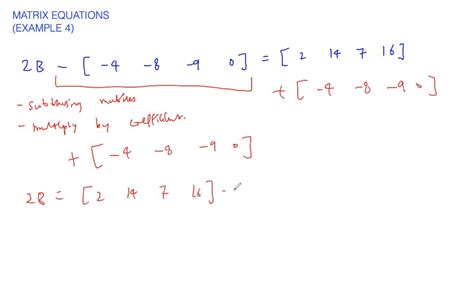 MATRIX EQUATIONS
(EXAMPLE 4)
2B - [ -4 -8 -9 0 ] = [ 2 14 7 16 ]
+ [ -4 -8 -9 0 ]
- subtracting matrices
- multiply by coefficient.
+ [ -4 -8 -9 0 ]
2B = [ 2 14 7 16 ] -